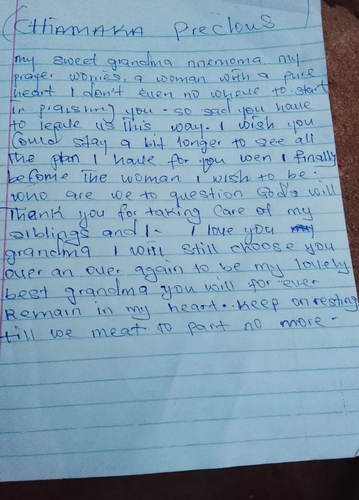 CHIAMAKA Precious
my sweet grandma nnemoma my
prayer worries, a woman with a pure
heart I don't even no where to start
in praishing you. so sad you have
to leave us this way. I wish you
Could stay a bit longer to see all
the plan I have for you wen I finally
become the woman I wish to be.
who are we to question God's will
Thank you for taking care of my
siblings and I. I love you my
grandma I will still choose you
over an over again to be my lovely
best grandma you will for ever
Remain in my heart.. keep on resting
till we meat to part no more.